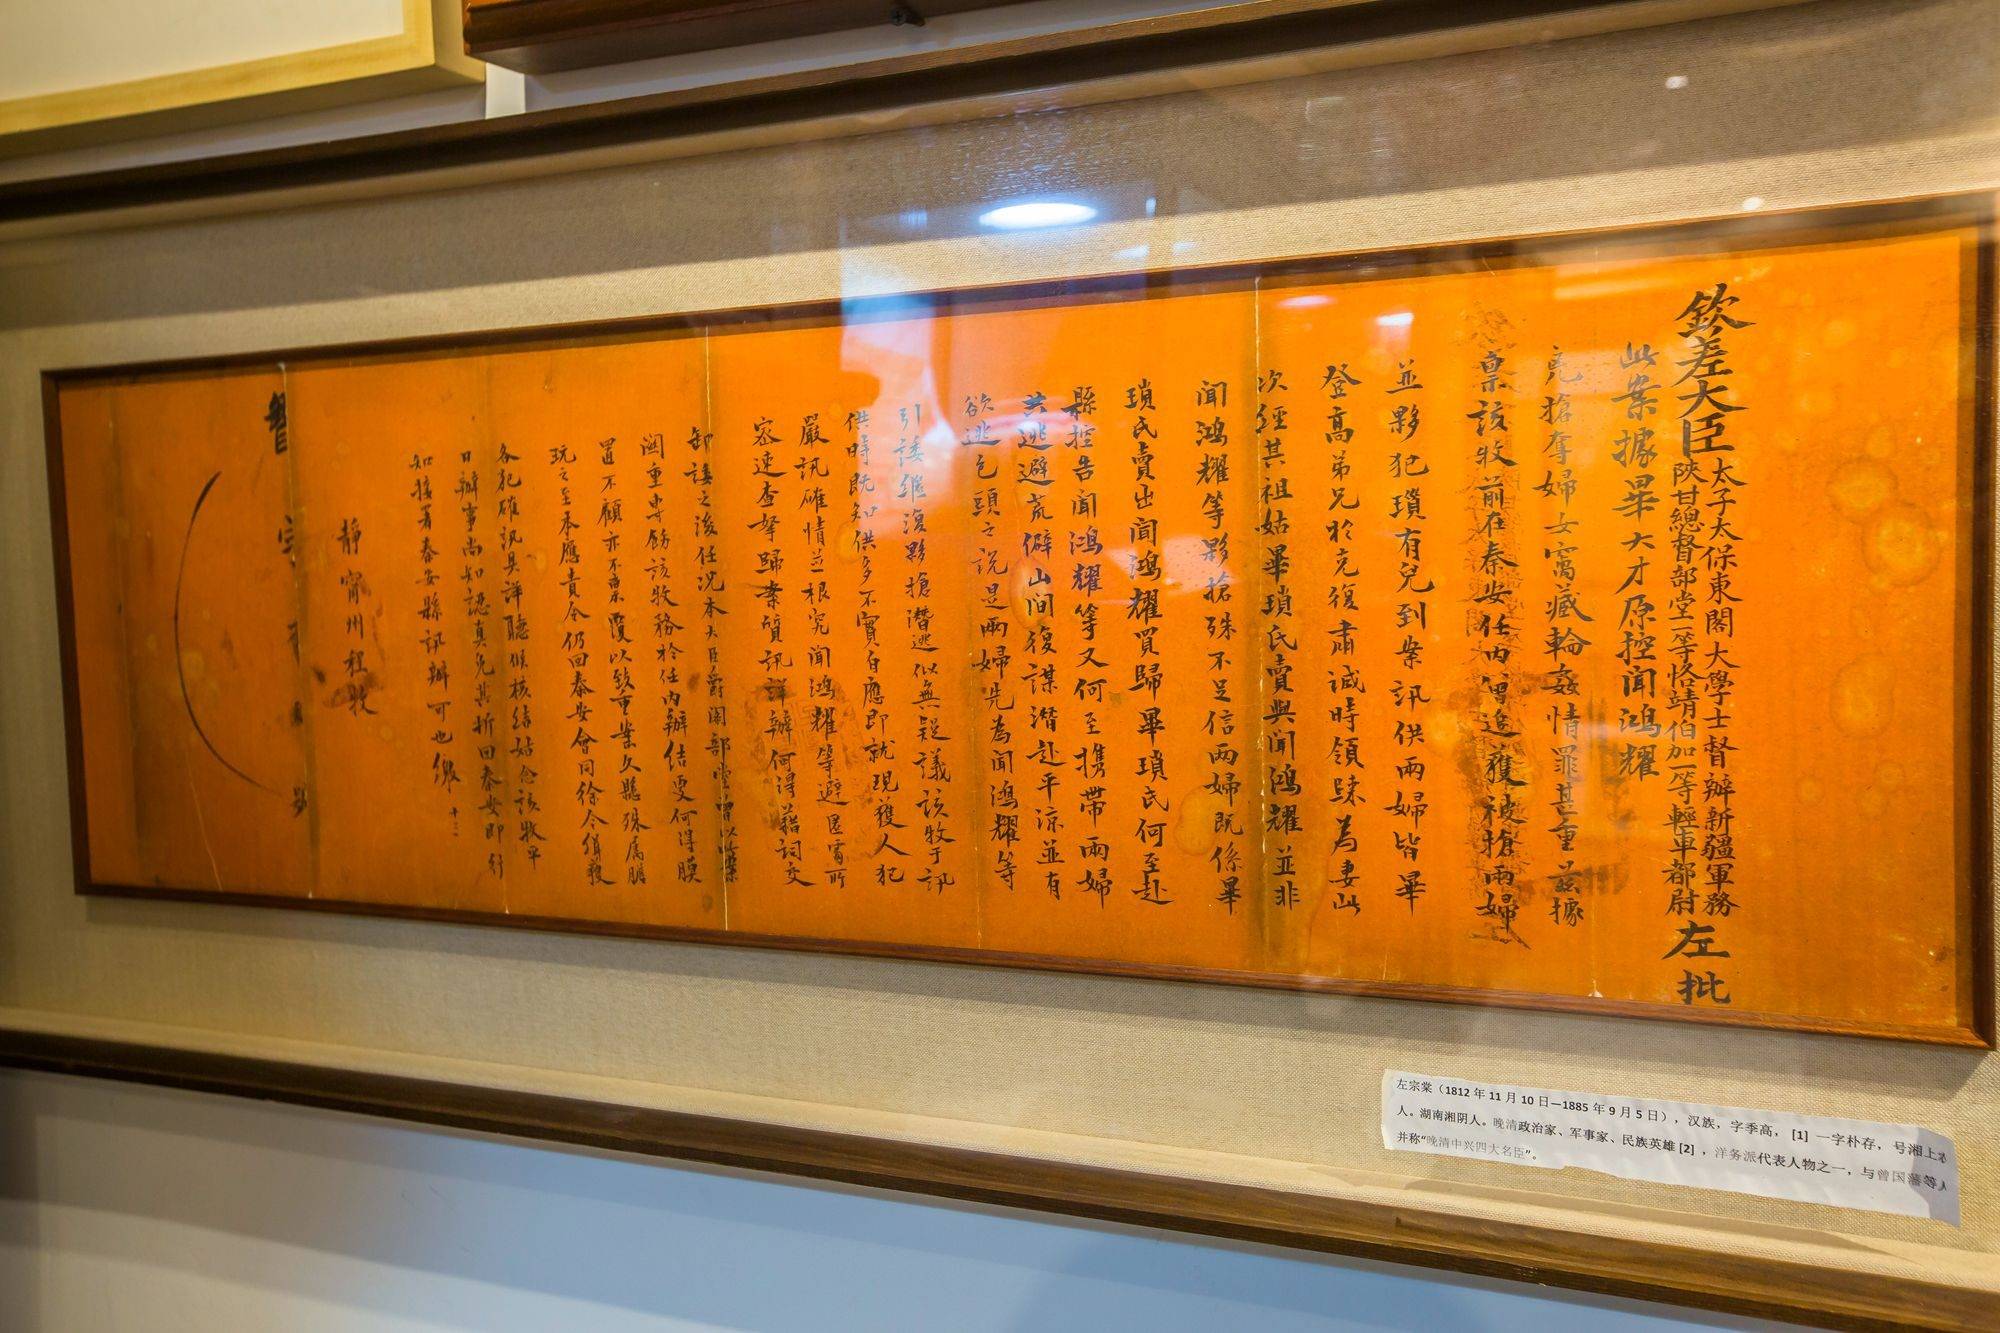 欽差大臣
太子太保東閣大學士督辦新疆軍務
陝甘總督部堂一等恪靖伯加一等輕車都尉
左批
此案據畢大才原控聞鴻耀
搶奪婦女窩藏輪姦情罪甚重茲據
稟該牧前在秦安任內曾追獲被搶兩婦
並夥犯瑣有兒到案訊供兩婦皆畢
登高弟兄於克復肅誠時領歸為妻此
次經其祖姑畢瑣氏賣與聞鴻耀並非
聞鴻耀等夥搶殊不足信兩婦既係畢
瑣氏賣出聞鴻耀買歸畢瑣氏何至赴
縣控告聞鴻耀等又何至携帶兩婦
共逃避荒僻山間復謀潛赴平涼並有
欲逃乞頭之說是兩婦先為聞鴻耀等
引誘繼復夥搶潛逃似無疑議該牧于訊
供時既知供多不實自應即就現獲人犯
嚴訊確情並根究聞鴻耀等避匿窩所
密速查拏歸案質訊詳辦何得藉詞交
卸諉之後任况本大臣爵閣部堂曾以此案
關重専飭該牧務於任內辦結更何得膜
置不顧亦不稟覆以致重案久懸殊屬
玩之至本應責令仍回秦安會同徐令緝獲
各犯確訊具詳聽候核結姑念該牧平
日辦事尚知認真免其折回秦安即行
知接署秦安縣訊辦可也繳 十三
靜甯州程牧
左宗棠（1812 年 11 月 10 日—1885 年 9 月 5 日），汉族，字季高，[1] 一字朴存，号湘上农
人。湖南湘阴人。晚清政治家、军事家、民族英雄[2]，洋务派代表人物之一，与曾国藩等人
并称“晚清中兴四大名臣”。